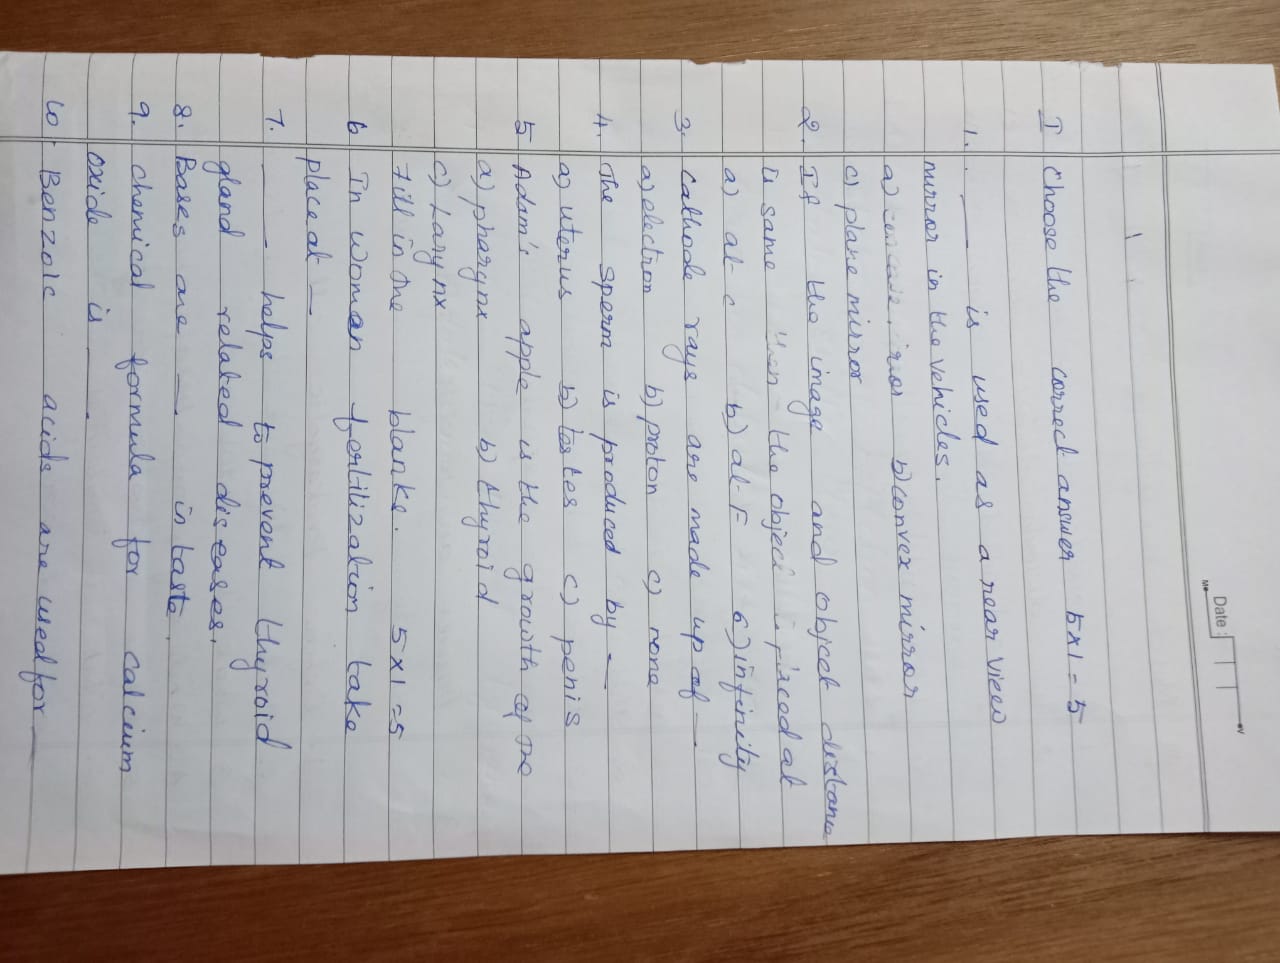 Date :
I Choose the correct answer 5x1=5
1. ___ is used as a rear view
mirror in the vehicles.
a) b) convex mirror
c) plane mirror
2. If the image and object distance
is same then the object is placed at
a) at c b) at F c) infinity
3. Cathode rays are made up of —
a) electron b) proton c) none
4. The sperm is produced by —
a) uterus b) testes c) penis
5 Adam's apple is the growth of the
a) pharynx b) thyroid
c) Larynx
Fill in the blanks. 5x1=5
6 In woman fertilization take
place at —
7. ___ helps to prevent thyroid
gland related diseases.
8. Bases are — in taste.
9. chemical formula for calcium
oxide is ___.
10 Benzoic acids are used for —